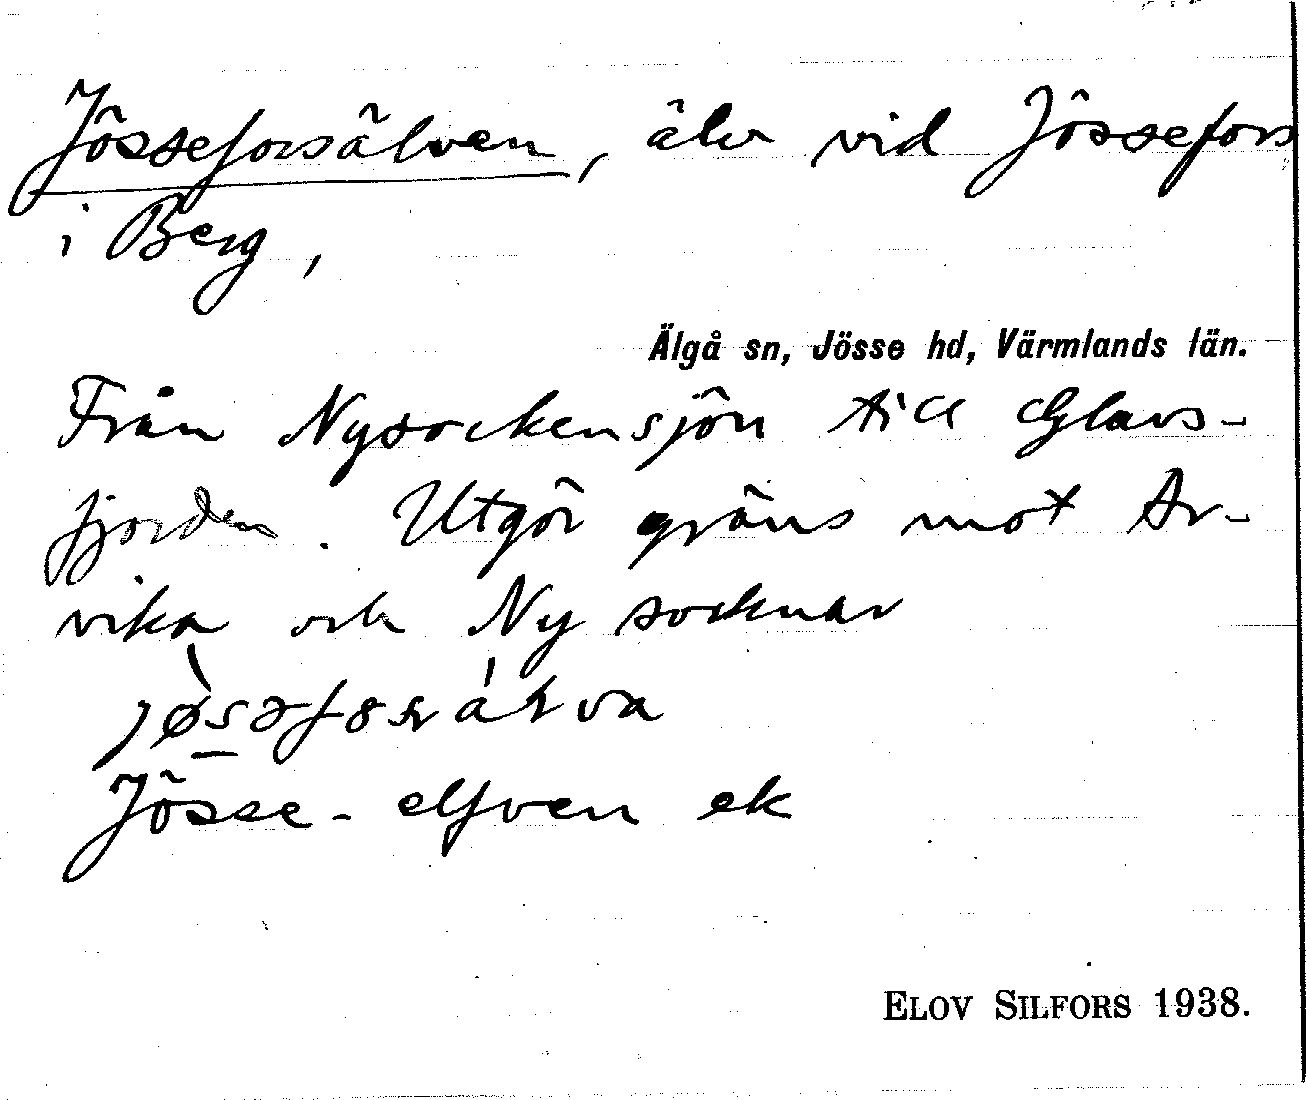 Jösseforsälven, älv vid Jössefors
i Berg,
Älgå sn, Jösse hd, Värmlands län.
Från Nysockensjön till Glavs-
fjorden. Utgör gräns mot Ar-
vika och Ny socknar
Jösse-elfven ek
ELOV SILFORS 1938.